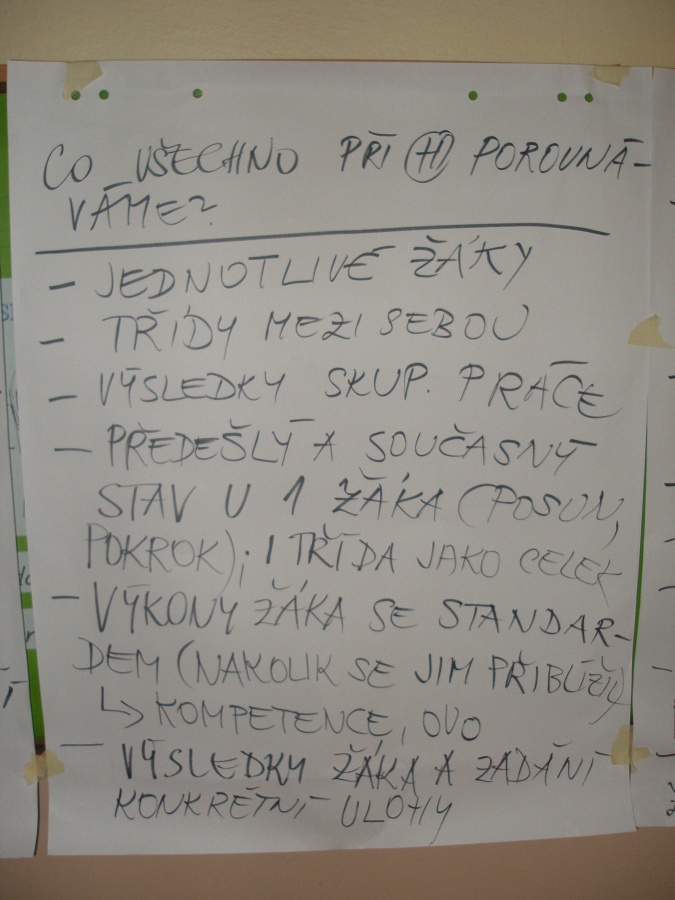 CO VŠECHNO PŘI (H) POROVNÁ-
VÁME?
- JEDNOTLIVÉ ŽÁKY
- TŘÍDY MEZI SEBOU
- VÝSLEDKY SKUP. PRÁCE
- PŘEDEŠLÝ A SOUČASNÝ
STAV U 1 ŽÁKA (POSUN,
POKROK); I TŘÍDA JAKO CELEK
- VÝKONY ŽÁKA SE STANDAR-
DEM (NAKOLIK SE JIM PŘIBLÍŽIL)
↳ KOMPETENCE, OVO
- VÝSLEDKY ŽÁKA A ZADÁNÍ
KONKRÉTNÍ ÚLOHY